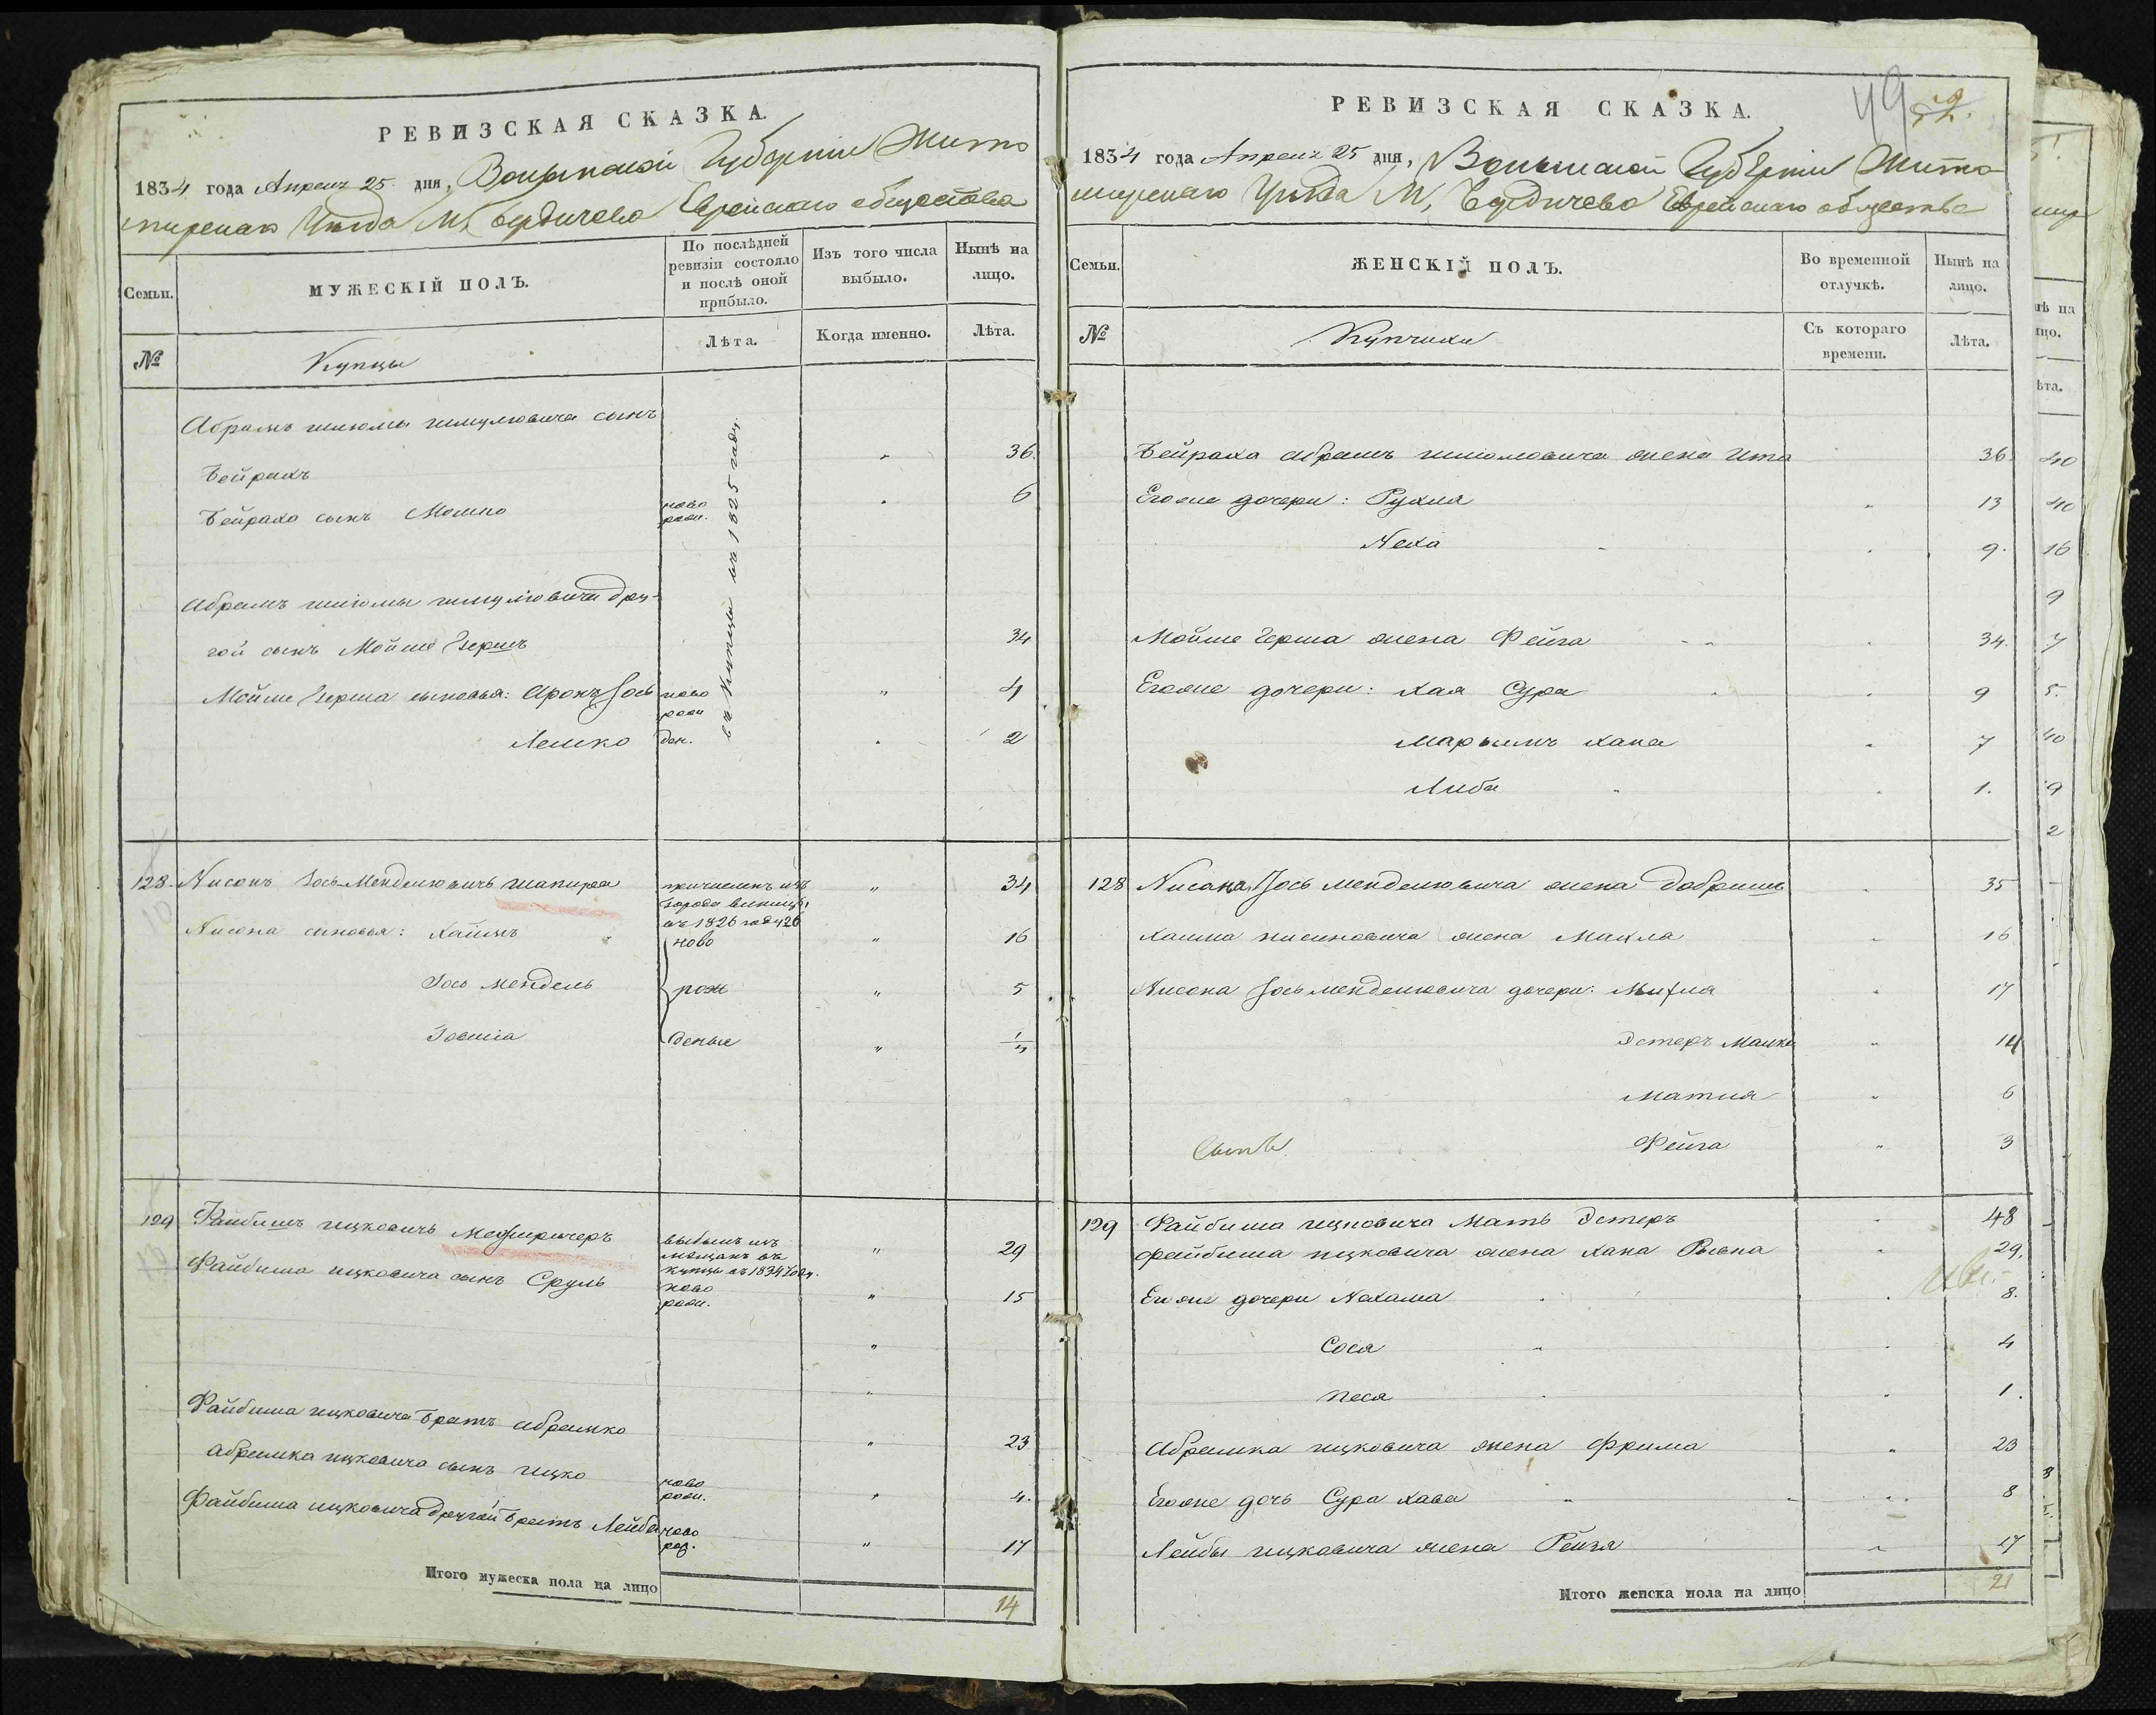 РЕВИЗСКАЯ СКАЗКА.
1834 года Апреля 25 дня, Волынской Губернiи Жито
мирскаго Уѣзда М. Бердичева Еврейскаго общества
Семьи.
МУЖЕСКIЙ ПОЛЪ.
По послѣдней ревизiи состояло и послѣ оной прибыло.
Изъ того числа выбыло.
Нынѣ на лицо.
№
Купцы
Лѣта.
Когда именно.
Лѣта.
Абрамъ шлiомы шмулiовича сынъ
Бейрахъ 36.
Бейраха сынъ Мошко ново рож. 6
Абрамъ шлiомы шмулiовича дру-
гой сынъ Мойше Гершъ 34
Мойше Герша сыновья: Аронъ Iось ново рож 4
Лешко ден. 2
въ Купцы въ 1825 году
128. Нисонъ Iось-Менделiовичъ шапира причисленъ изъ города винницы въ 1826 году 26 " 34
Нисона сыновья: Хаимъ ново " 16
Iось мендель рож " 5
Iовшiа деные " 1/4
129 Файбишъ ицковичъ Межиричеръ выбылъ изъ мещанъ въ купцы въ 1834 году. " 29
Файбиша ицковича сынъ Сруль ново рож. " 15
"
"
Файбиша ицковича братъ абрамко " 23
Абрамка ицковича сынъ ицко ново рож. " 4.
Файбиша ицковича другой братъ Лейба ново рож. " 17
Итого мужеска пола на лицо 14
49 52.
РЕВИЗСКАЯ СКАЗКА.
1834 года Апреля 25 дня, Волынской Губернiи Жито-
мирскаго Уѣзда М. Бердичева Еврейскаго общества
Семьи.
ЖЕНСКIЙ ПОЛЪ.
Во временной отлучкѣ.
Нынѣ на лицо.
№
Купчихи
Съ котораго времени.
Лѣта.
Бейраха абрамъ шлiомовича жена Ита 36
Егоже дочери: Рухля 13
Неха 9.
Мойше Герша жена Фейга 34.
Егоже дочери: хая Сура 9
Марьямъ хана 7
Либа 1.
128 Нисана Iось менделiовича жена Добришъ 35
Хаима нисоновича жена Махля 16
Нисона Iось менделiовича дочери: 17
Эстеръ Малка 14
Матля 6
Фейга 3
129 Файбиша ицковича Мать Эстеръ 48
файбиша ицковича жена хана Рывка 29,
Ег же дочери Нехама 8.
Сося 4
Песя 1.
Абрамка ицковича жена Фрима " 23
Егоже дочь Сура хава 8
Лейбы ицковича жена Рейзя 17
Итого женска пола на лицо 21